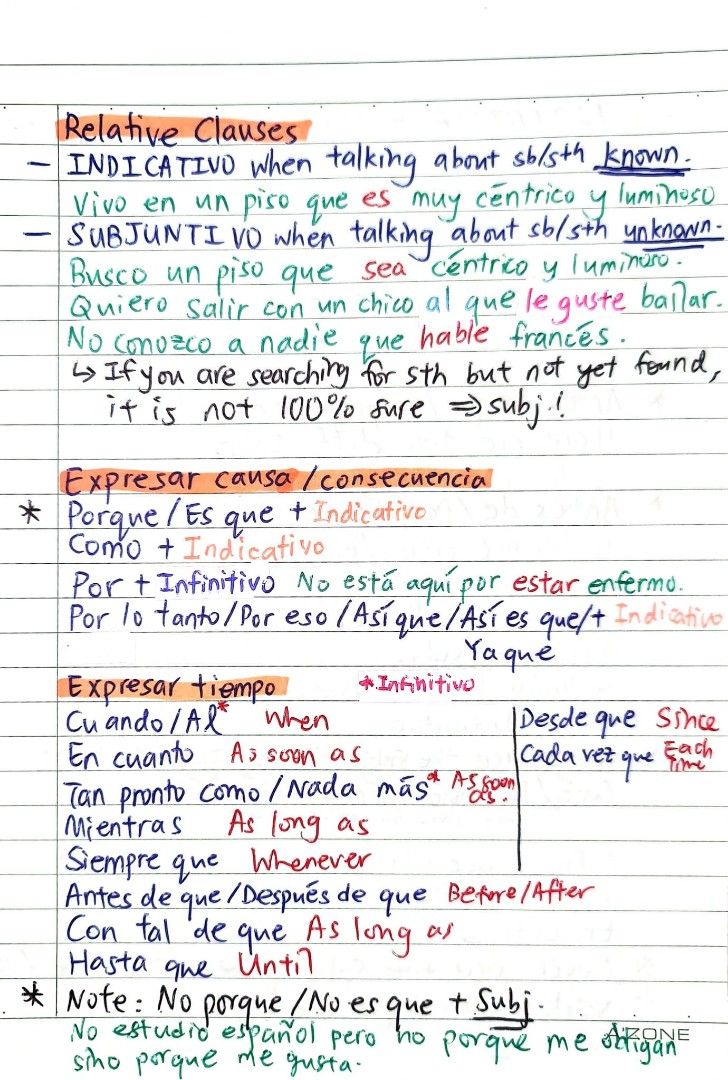 Relative Clauses
— INDICATIVO when talking about sb/sth known.
Vivo en un piso que es muy céntrico y luminoso
— SUBJUNTIVO when talking about sb/sth unknown.
Busco un piso que sea céntrico y luminoso.
Quiero salir con un chico al que le guste bailar.
No conozco a nadie que hable francés.
↳ If you are searching for sth but not yet found,
it is not 100% sure ⇒ subj.!
Expresar causa/consecuencia
* Porque/Es que + Indicativo
Como + Indicativo
Por + Infinitivo No está aquí por estar enfermo.
Por lo tanto/Por eso/Así que/Así es que/+ Indicativo
Ya que
Expresar tiempo *Infinitivo
Cuando/Al* When
En cuanto As soon as
Tan pronto como/Nada más* As soon as.
Mientras As long as
Siempre que Whenever
Desde que Since
Cada vez que Each Time
Antes de que/Después de que Before/After
Con tal de que As long as
Hasta que Until
* Note: No porque/No es que + Subj.
No estudio español pero no porque me obligan
sino porque me gusta.